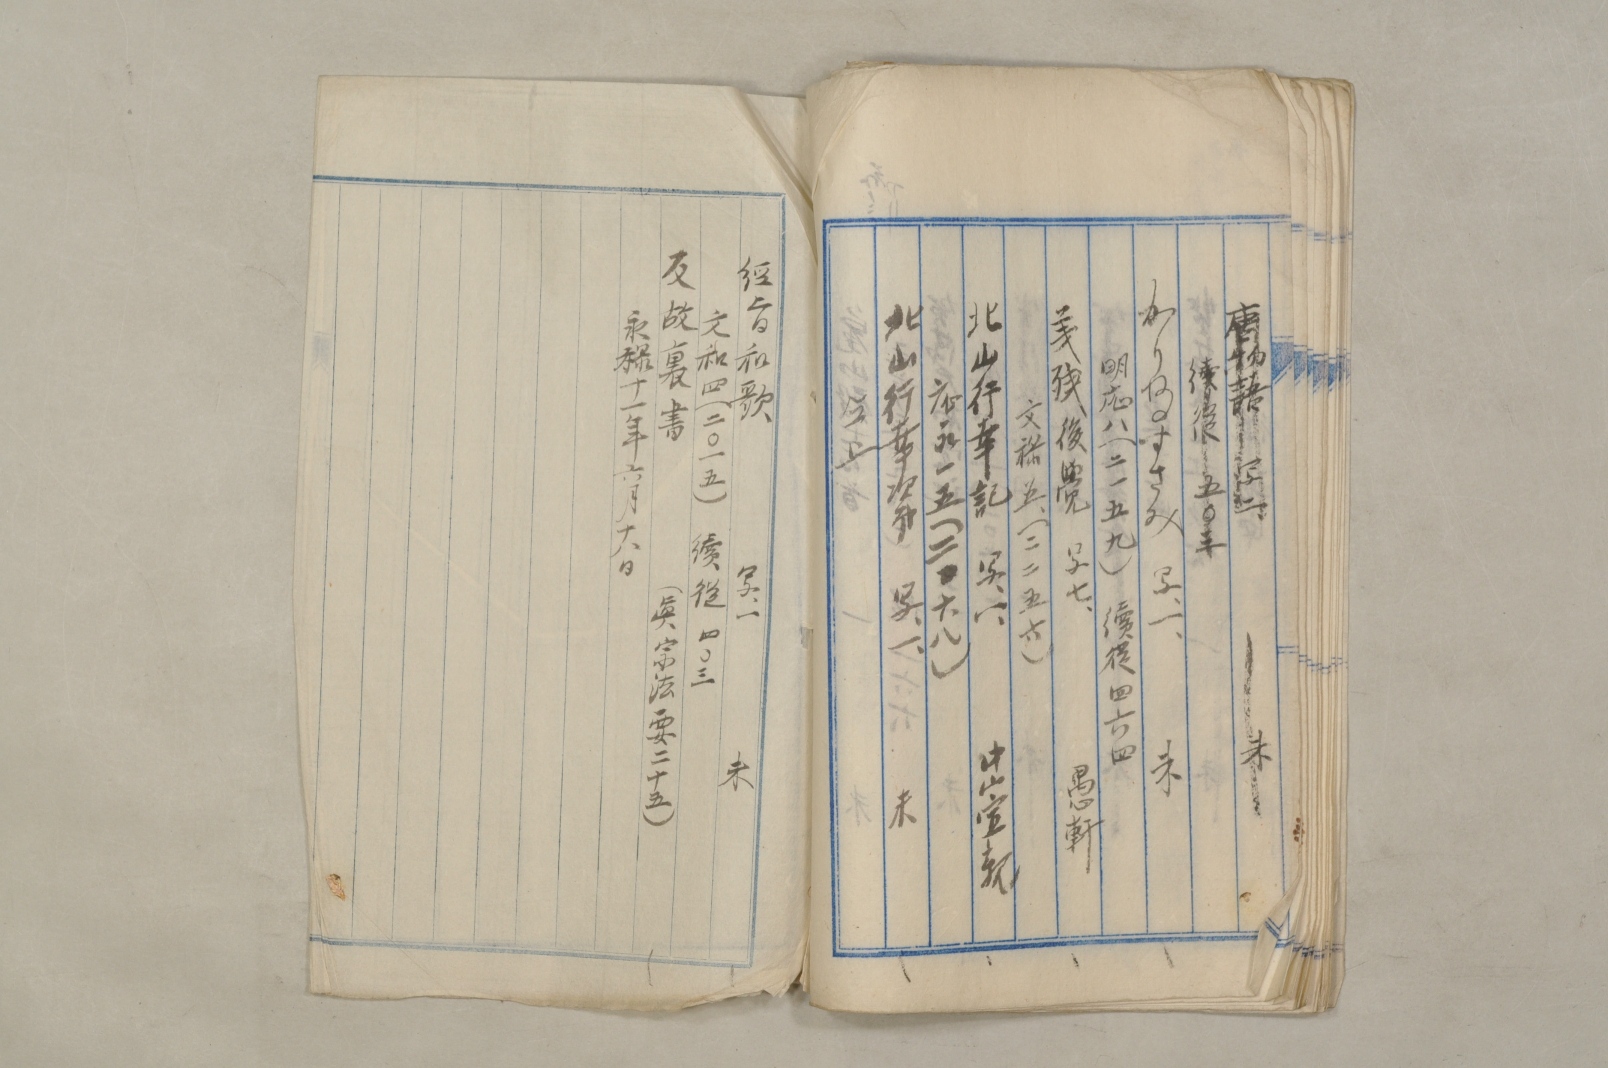 唐物語 写二、 未
續従 五〇三
かりねのすさみ 写、一、 未
明応八(二一五九) 續従四六四
義残後覺 写七、 愚軒
文禄五、(二二五六)
北山行幸記 写、六 中山宣親
応永一五(二〇六八)
北山行幸次第 写、一、 未
經旨和歌 写、一 未
文和四(二〇一五) 續従 四〇三
反故裏書 (眞宗法要二十五)
永禄十一年六月十八日